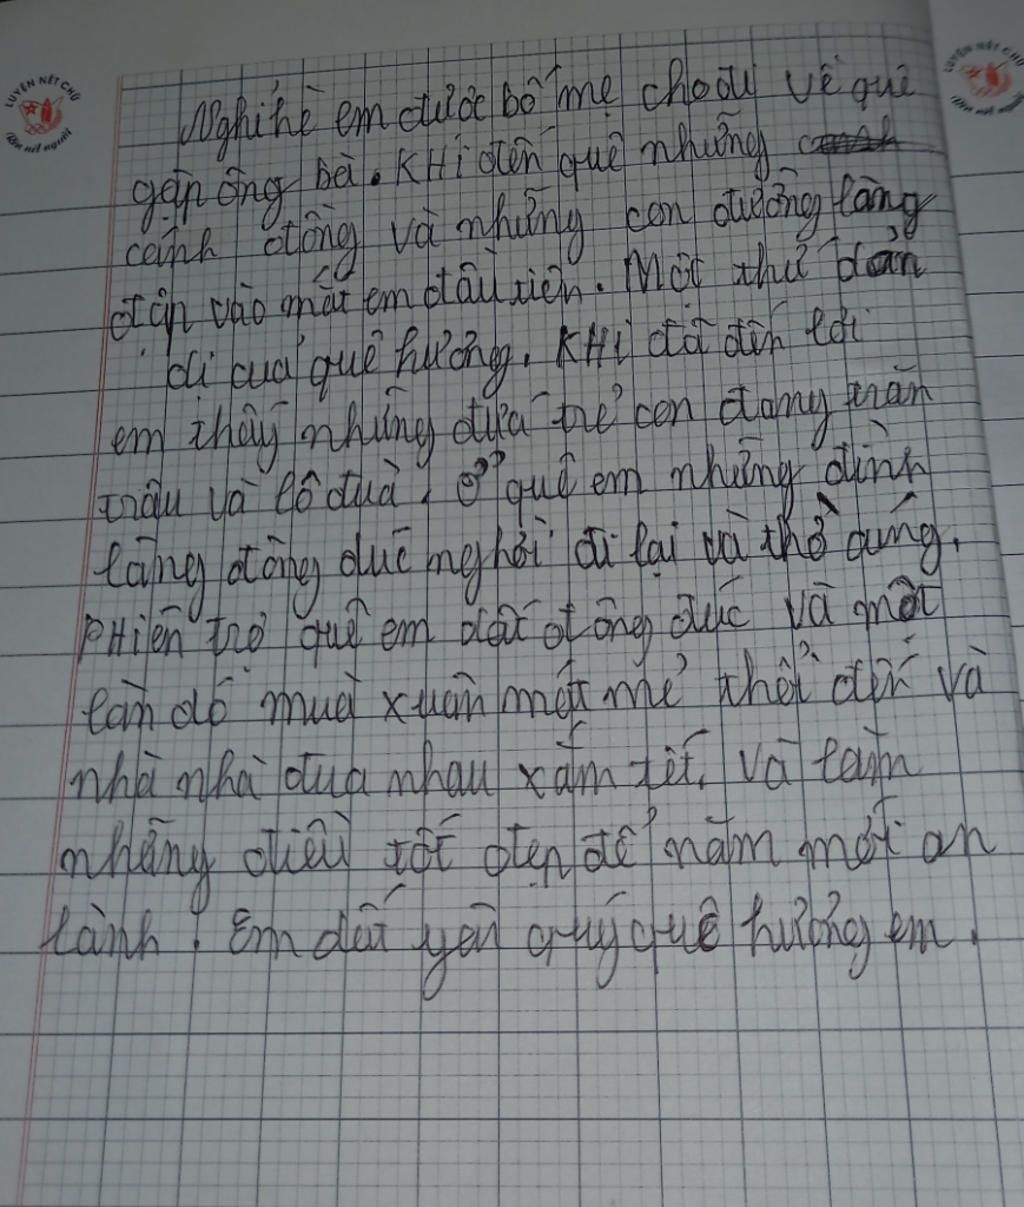 LUYỆN NÉT CHỮ
Rèn nết người
LUYỆN NÉT CHỮ
Rèn nết người
Nghỉ hè em được bố mẹ cho đy về quê
gặp ông bè. KHi đến quê những
cảnh đồng và những con đường làng
đập vào mắt em đầu tiên. Một thứ dản
dị cuả quê hương. KHi đã đến lơi
em thấy những đứa trẻ con đang trăn
trâu và lô đuà. ở quê em những đình
làng đông đuc nghời đi lại và thờ cúng.
PHiên trợ quê em dất đông đúc và một
lần đó muà xuân mớt mẻ thổi đến và
nhà nhà đua nhau xắm tết. Và laìm
những điều tốt đẹp để năm mới an
lành. Em dất yêu quý quê hương em.